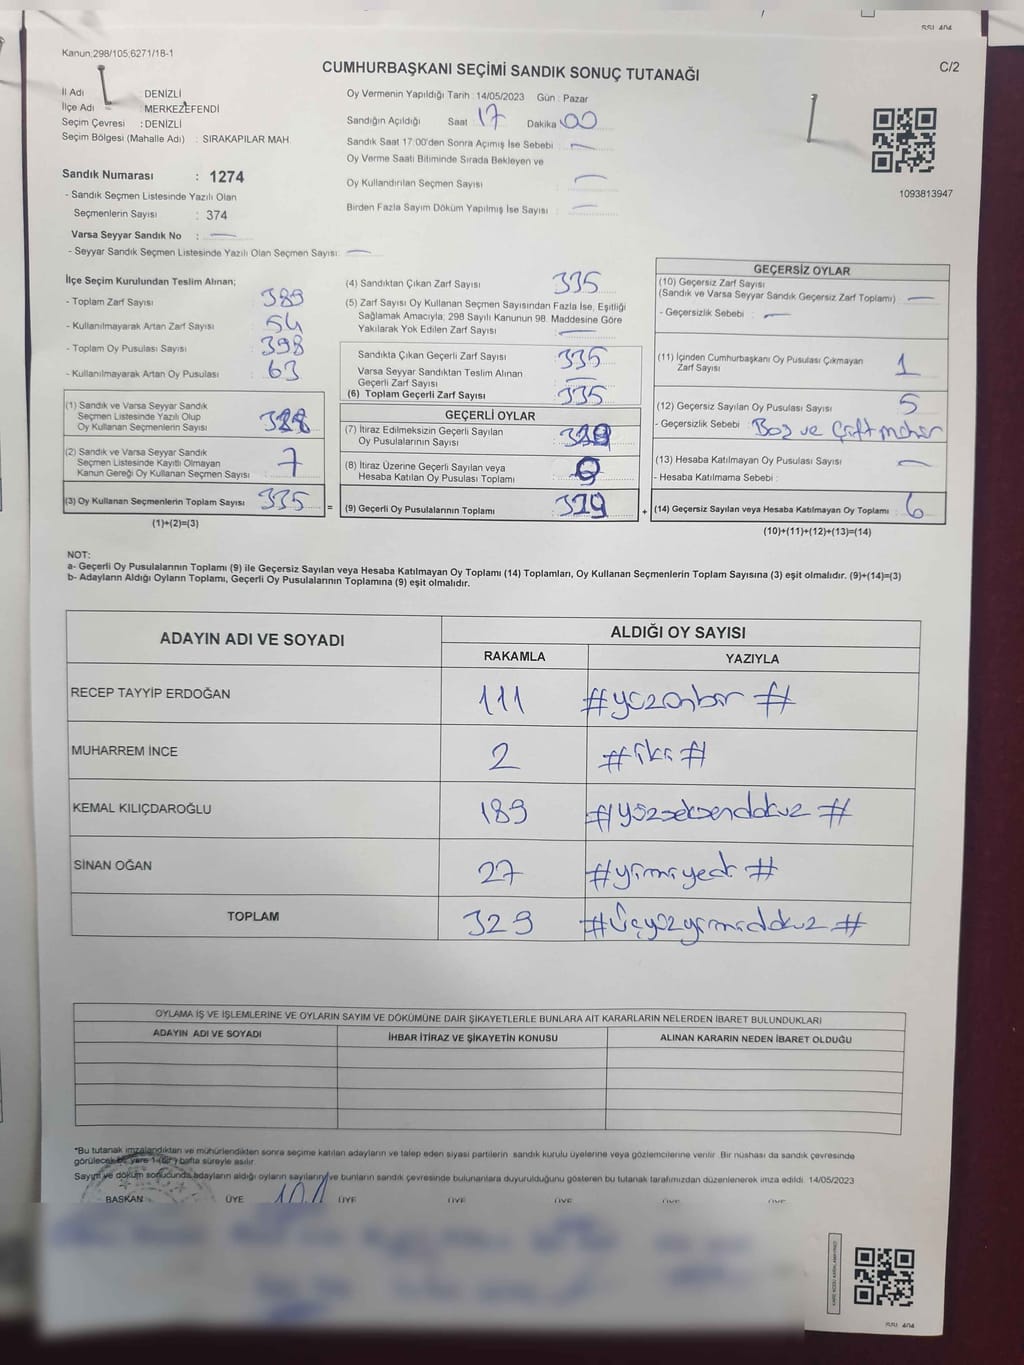 SSI 404
Kanun;298/105,6271/18-1
C/2
CUMHURBAŞKANI SEÇİMİ SANDIK SONUÇ TUTANAĞI
İl Adı : DENİZLİ
İlçe Adı : MERKEZEFENDİ
Seçim Çevresi : DENİZLİ
Seçim Bölgesi (Mahalle Adı) : SIRAKAPILAR MAH
Oy Vermenin Yapıldığı Tarih : 14/05/2023 Gün : Pazar
Sandığın Açıldığı Saat 17 Dakika 00
Sandık Saat 17:00'den Sonra Açımış İse Sebebi : —
Oy Verme Saati Bitiminde Sırada Bekleyen ve
Oy Kullandırılan Seçmen Sayısı : —
Birden Fazla Sayım Döküm Yapılmış İse Sayısı : —
1093813947
Sandık Numarası : 1274
- Sandık Seçmen Listesinde Yazılı Olan
Seçmenlerin Sayısı : 374
Varsa Seyyar Sandık No : —
- Seyyar Sandık Seçmen Listesinde Yazılı Olan Seçmen Sayısı: —
İlçe Seçim Kurulundan Teslim Alınan;
- Toplam Zarf Sayısı 389
- Kullanılmayarak Artan Zarf Sayısı 54
- Toplam Oy Pusulası Sayısı 398
- Kullanılmayarak Artan Oy Pusulası 63
(1) Sandık ve Varsa Seyyar Sandık
Seçmen Listesinde Yazılı Olup
Oy Kullanan Seçmenlerin Sayısı 328
(2) Sandık ve Varsa Seyyar Sandık
Seçmen Listesinde Kayıtlı Olmayan
Kanun Gereği Oy Kullanan Seçmen Sayısı 7
(3) Oy Kullanan Seçmenlerin Toplam Sayısı 335 =
(1)+(2)=(3)
(4) Sandıktan Çıkan Zarf Sayısı 335
(5) Zarf Sayısı Oy Kullanan Seçmen Sayısından Fazla İse, Eşitliği
Sağlamak Amacıyla; 298 Sayılı Kanunun 98. Maddesine Göre
Yakılarak Yok Edilen Zarf Sayısı : —
Sandıkta Çıkan Geçerli Zarf Sayısı 335
Varsa Seyyar Sandıktan Teslim Alınan
Geçerli Zarf Sayısı —
(6) Toplam Geçerli Zarf Sayısı 335
GEÇERLİ OYLAR
(7) İtiraz Edilmeksizin Geçerli Sayılan
Oy Pusulalarının Sayısı 329
(8) İtiraz Üzerine Geçerli Sayılan veya
Hesaba Katılan Oy Pusulası Toplamı 0
(9) Geçerli Oy Pusulalarının Toplamı 329 +
GEÇERSİZ OYLAR
(10) Geçersiz Zarf Sayısı
(Sandık ve Varsa Seyyar Sandık Geçersiz Zarf Toplamı) —
- Geçersizlik Sebebi : —
(11) İçinden Cumhurbaşkanı Oy Pusulası Çıkmayan
Zarf Sayısı 1
(12) Geçersiz Sayılan Oy Pusulası Sayısı 5
- Geçersizlik Sebebi : Boş ve Çift mühür
(13) Hesaba Katılmayan Oy Pusulası Sayısı —
- Hesaba Katılmama Sebebi :
(14) Geçersiz Sayılan veya Hesaba Katılmayan Oy Toplamı : 6
(10)+(11)+(12)+(13)=(14)
NOT:
a- Geçerli Oy Pusulalarının Toplamı (9) ile Geçersiz Sayılan veya Hesaba Katılmayan Oy Toplamı (14) Toplamları, Oy Kullanan Seçmenlerin Toplam Sayısına (3) eşit olmalıdır. (9)+(14)=(3)
b- Adayların Aldığı Oyların Toplamı, Geçerli Oy Pusulalarının Toplamına (9) eşit olmalıdır.
ADAYIN ADI VE SOYADI ALDIĞI OY SAYISI
RAKAMLA YAZIYLA
RECEP TAYYİP ERDOĞAN 111 #yüzonbir#
MUHARREM İNCE 2 #iki#
KEMAL KILIÇDAROĞLU 189 #yüzseksendokuz#
SİNAN OĞAN 27 #yirmiyedi#
TOPLAM 329 #Üçyüzyirmidokuz#
OYLAMA İŞ VE İŞLEMLERİNE VE OYLARIN SAYIM VE DÖKÜMÜNE DAİR ŞİKAYETLERLE BUNLARA AİT KARARLARIN NELERDEN İBARET BULUNDUKLARI
ADAYIN ADI VE SOYADI İHBAR İTİRAZ VE ŞİKAYETİN KONUSU ALINAN KARARIN NEDEN İBARET OLDUĞU
*Bu tutanak imzalandıktan ve mühürlendikten sonra seçime katılan adayların ve talep eden siyasi partilerin sandık kurulu üyelerine veya gözlemcilerine verilir. Bir nüshası da sandık çevresinde
görülecek bir yere 1 (bir) hafta süreyle asılır.
Sayım ve döküm sonucunda adayların aldığı oyların sayılarını ve bunların sandık çevresinde bulunanlara duyurulduğunu gösteren bu tutanak tarafımızdan düzenlenerek imza edildi. 14/05/2023
BAŞKAN ÜYE ÜYE ÜYE ÜYE ÜYE ÜYE
SSI 404